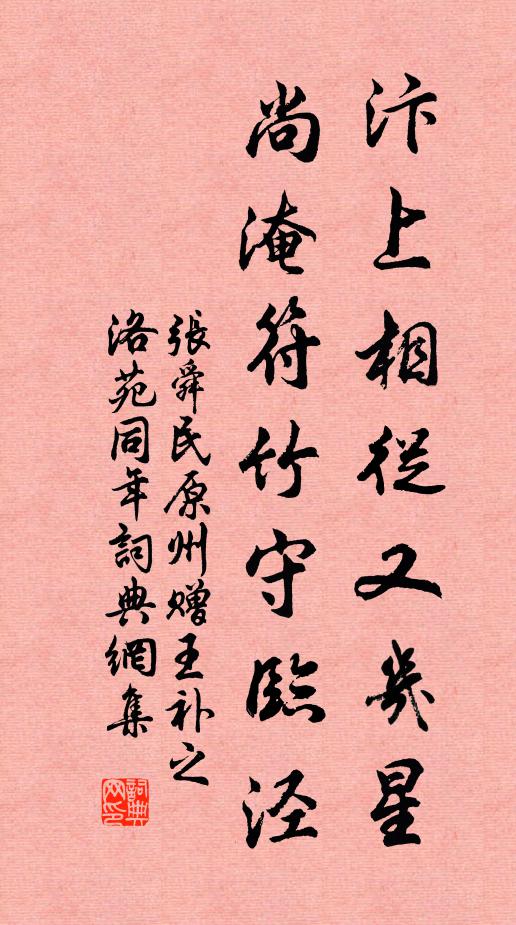 汴上相從又幾星
尚淹符竹守臨泾
張舜民原州贈王补之
洛苑同年詞典網集
詞典网印